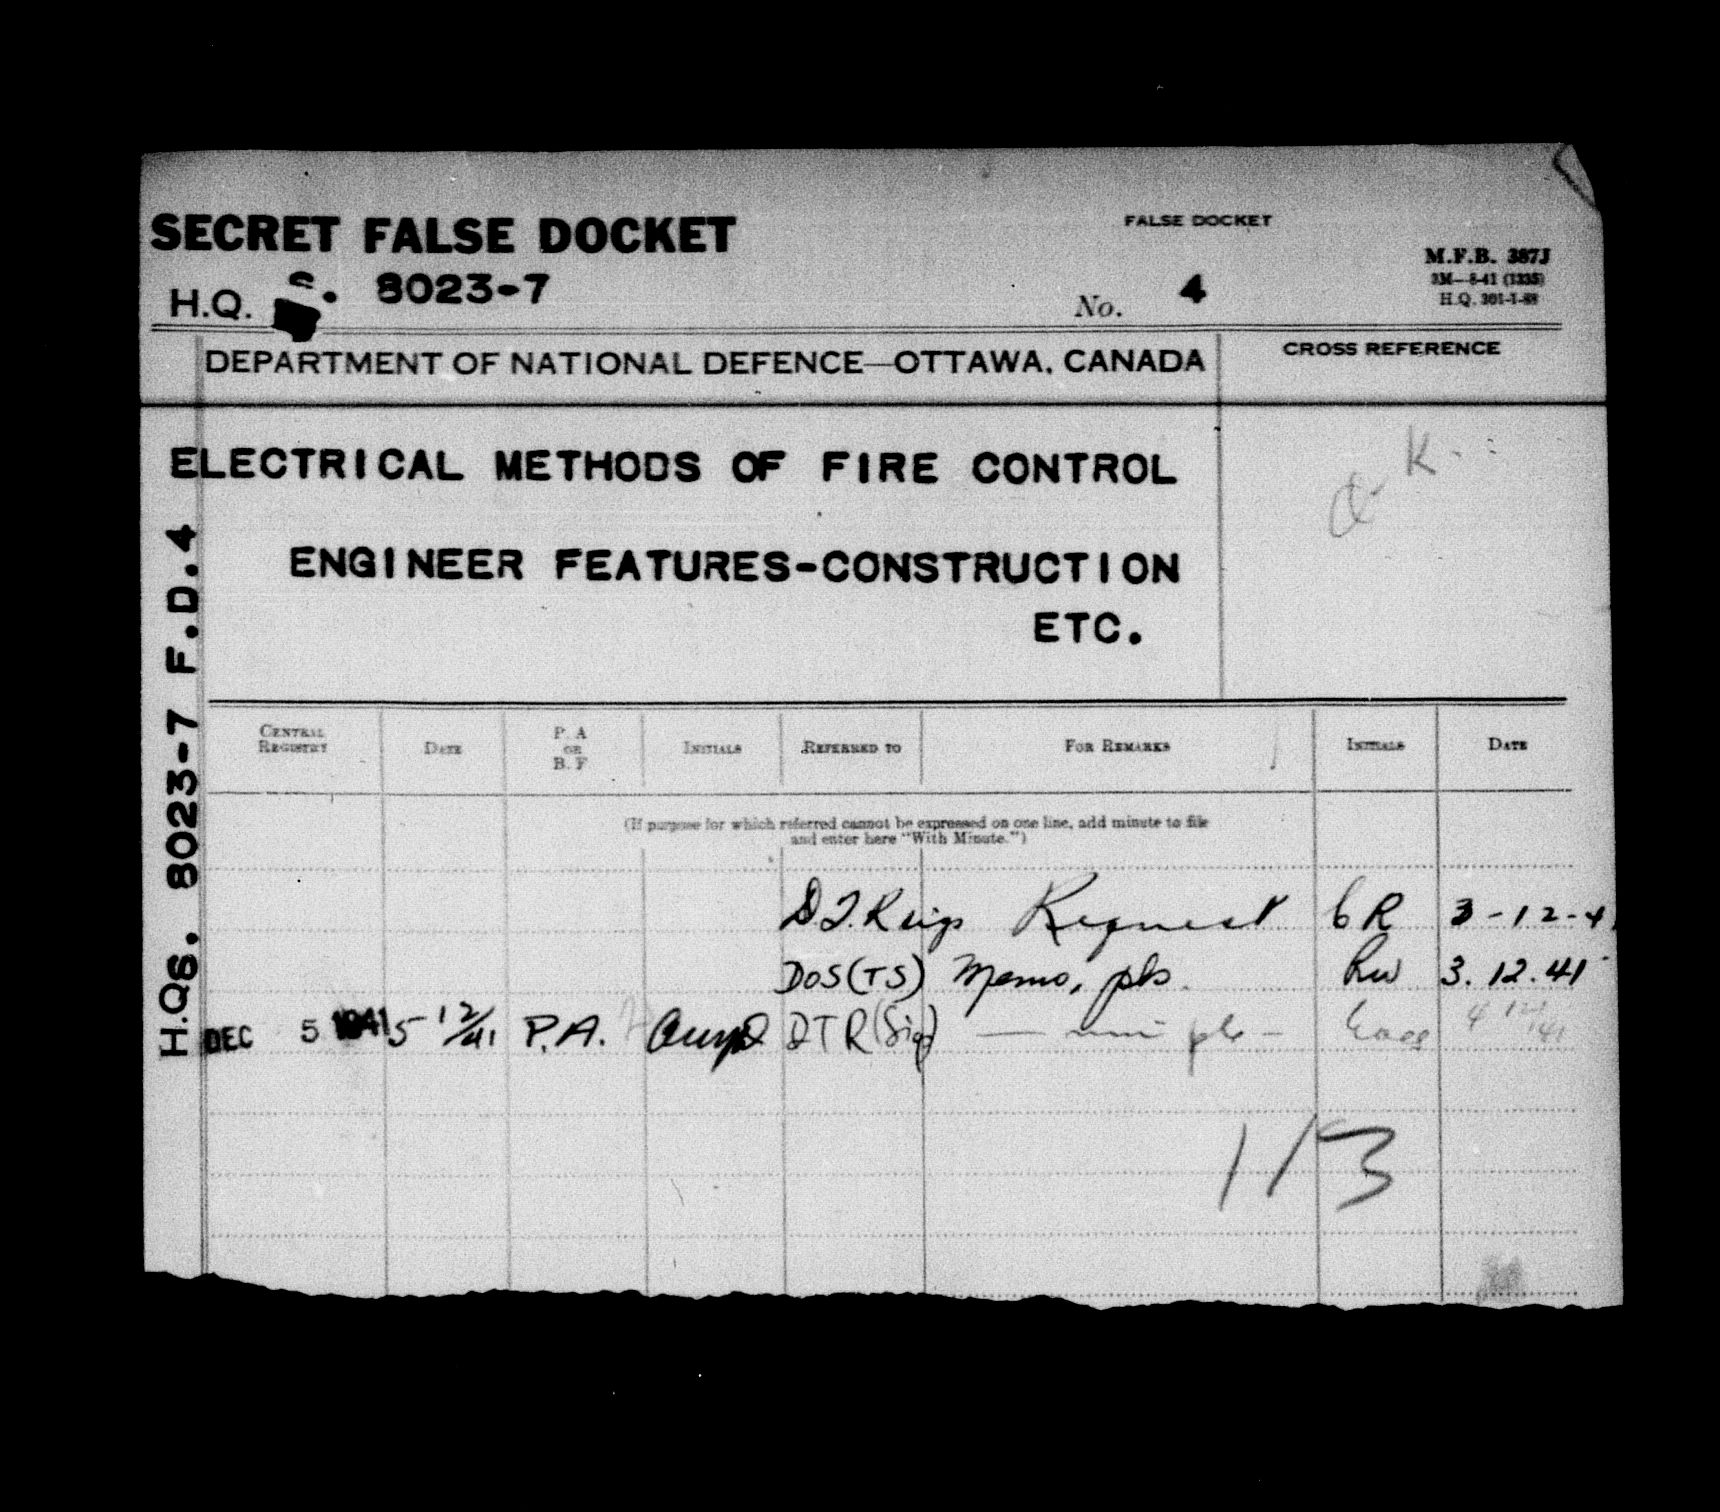 SECRET FALSE DOCKET
FALSE DOCKET
M.F.B. 387J
3M—8-41 (1335)
H.Q. 301-1-88
H.Q. S. 8023-7
No. 4
DEPARTMENT OF NATIONAL DEFENCE—OTTAWA, CANADA
CROSS REFERENCE
ELECTRICAL METHODS OF FIRE CONTROL
K.
ENGINEER FEATURES-CONSTRUCTION
ETC.
H.QS. 8023-7 F.D.4
CENTRAL REGISTRY DATE P. A OR B. F INITIALS REFERRED TO FOR REMARKS INITIALS DATE
(If purpose for which referred cannot be expressed on one line, add minute to file
and enter here "With Minute.")
Request CR 3-12-41
DOS(TS) Memo, pls. 3.12.41
DEC 5 1941 5 12/41 P.A. DTR(Sig) 4 12/41
1/3